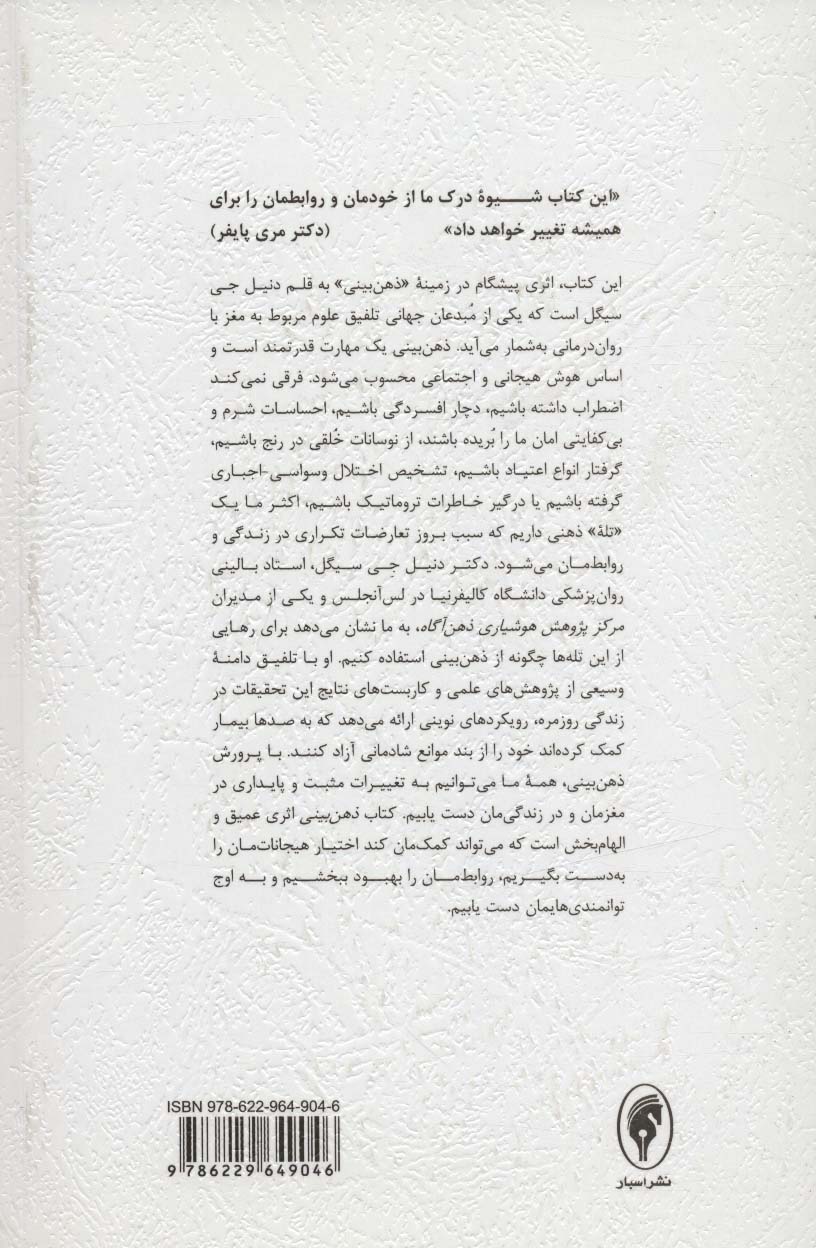 «این کتاب شـــیوهٔ درک ما از خودمان و روابطمان را برای
همیشه تغییر خواهد داد» (دکتر مری پایفر)
این کتاب، اثری پیشگام در زمینهٔ «ذهن‌بینی» به قلم دنیل جی
سیگل است که یکی از مُبدعان جهانی تلفیق علوم مربوط به مغز با
روان‌درمانی به‌شمار می‌آید. ذهن‌بینی یک مهارت قدرتمند است و
اساس هوش هیجانی و اجتماعی محسوب می‌شود. فرقی نمی‌کند
اضطراب داشته باشیم، دچار افسردگی باشیم، احساسات شرم و
بی‌کفایتی امان ما را بُریده باشند، از نوسانات خُلقی در رنج باشیم،
گرفتار انواع اعتیاد باشیم، تشخیص اختلال وسواسی-اجباری
گرفته باشیم یا درگیر خاطرات تروماتیک باشیم، اکثر ما یک
«تلهٔ» ذهنی داریم که سبب بروز تعارضات تکراری در زندگی و
روابط‌مان می‌شود. دکتر دنیل جِی سیگل، استاد بالینی
روان‌پزشکی دانشگاه کالیفرنیا در لس‌آنجلس و یکی از مدیران
مرکز پژوهش هوشیاری ذهن‌آگاه، به ما نشان می‌دهد برای رهایی
از این تله‌ها چگونه از ذهن‌بینی استفاده کنیم. او با تلفیق دامنهٔ
وسیعی از پژوهش‌های علمی و کاربست‌های نتایج این تحقیقات در
زندگی روزمره، رویکردهای نوینی ارائه می‌دهد که به صدها بیمار
کمک کرده‌اند خود را از بند موانع شادمانی آزاد کنند. با پرورش
ذهن‌بینی، همهٔ ما می‌توانیم به تغییرات مثبت و پایداری در
مغزمان و در زندگی‌مان دست یابیم. کتاب ذهن‌بینی اثری عمیق و
الهام‌بخش است که می‌تواند کمک‌مان کند اختیار هیجانات‌مان را
به‌دست بگیریم، روابط‌مان را بهبود ببخشیم و به اوج
توانمندی‌هایمان دست یابیم.
ISBN 978-622-964-904-6
9 786229 649046
نشر اسبار